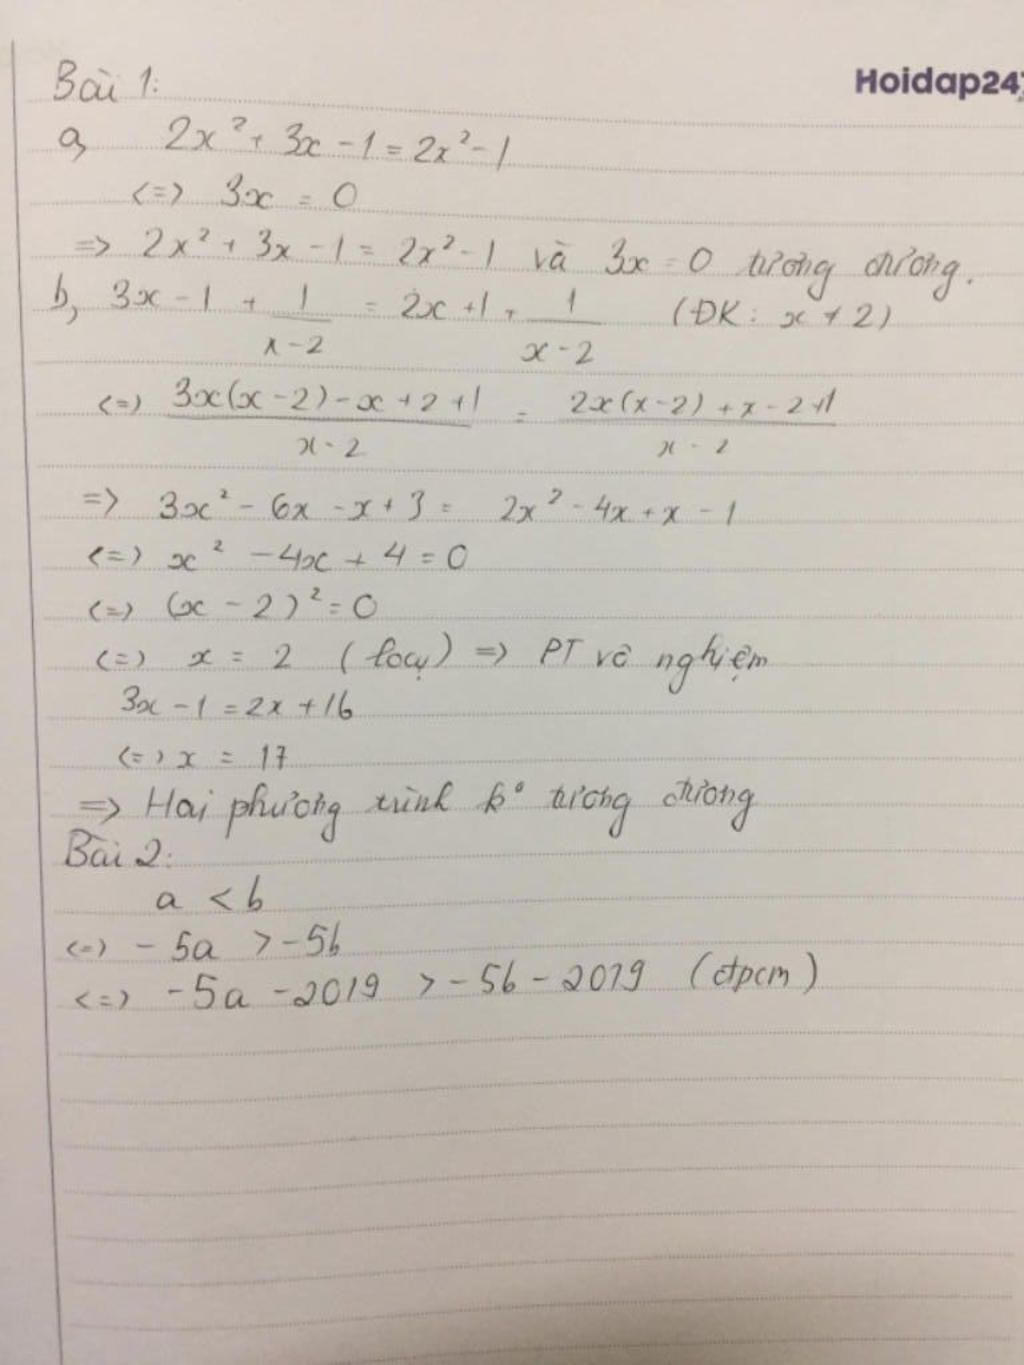 Hoidap247
Bài 1:
a, 2x² + 3x - 1 = 2x² - 1
<=> 3x = 0
=> 2x² + 3x - 1 = 2x² - 1 và 3x = 0 tương đương.
b, 3x - 1 + 1/(x - 2) = 2x + 1 + 1/(x - 2) (ĐK: x ≠ 2)
<=> (3x(x - 2) - x + 2 + 1)/(x - 2) = (2x(x - 2) + x - 2 + 1)/(x - 2)
=> 3x² - 6x - x + 3 = 2x² - 4x + x - 1
<=> x² - 4x + 4 = 0
<=> (x - 2)² = 0
<=> x = 2 (loại) => PT vô nghiệm
3x - 1 = 2x + 16
<=> x = 17
=> Hai phương trình k° tương đương
Bài 2:
a < b
<=> - 5a > - 5b
<=> - 5a - 2019 > - 5b - 2019 (đpcm)